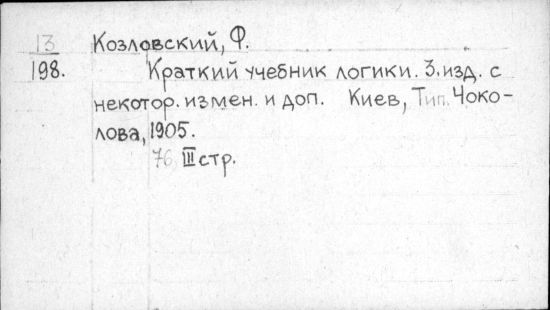 13 Козловский, Ф.
198. Краткий учебник логики. 3. изд. с
некотор. измен. и доп. Киев, Тип. Чоко-
лова, 1905.
76, III стр.